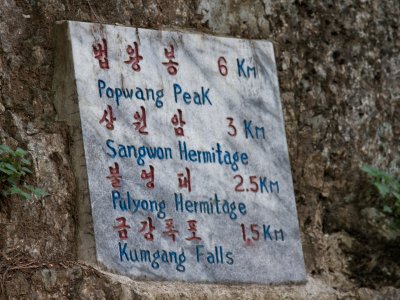 법왕봉 6 Km
Popwang Peak
상원암 3 Km
Sangwon Hermitage
불영대 2.5 Km
Pulyong Hermitage
금강폭포 1.5 Km
Kumgang Falls